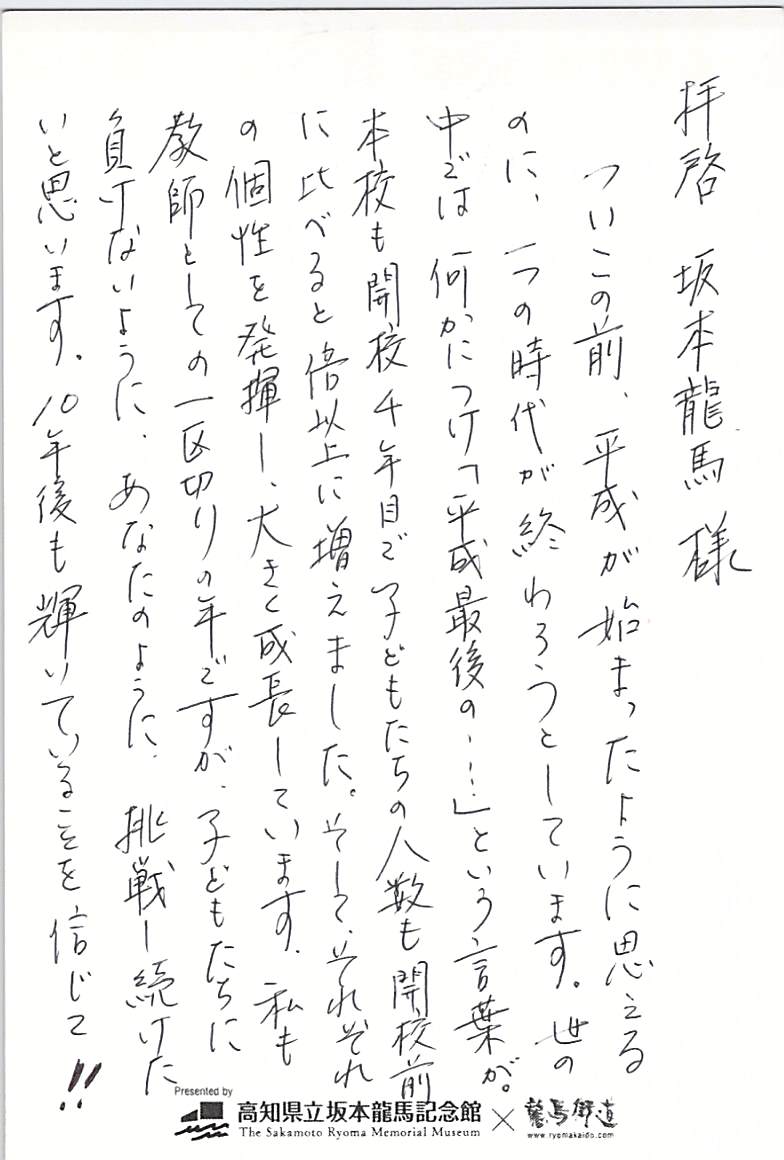 拝啓 坂本龍馬 様
ついこの前、平成が始まったように思える
のに、一つの時代が終わろうとしています。世の
中では何かにつけ「平成最後の…」という言葉が。
本校も開校4年目で子どもたちの人数も開校前
に比べると倍以上に増えました。そして、それぞれ
の個性を発揮し、大きく成長しています。私も
教師としての一区切りの年ですが、子どもたちに
負けないように、あなたのように、挑戦し続けた
いと思います。10年後も輝いていることを信じて!!
Presented by
高知県立坂本龍馬記念館
The Sakamoto Ryoma Memorial Museum
×
龍馬街道
www.ryomakaido.com